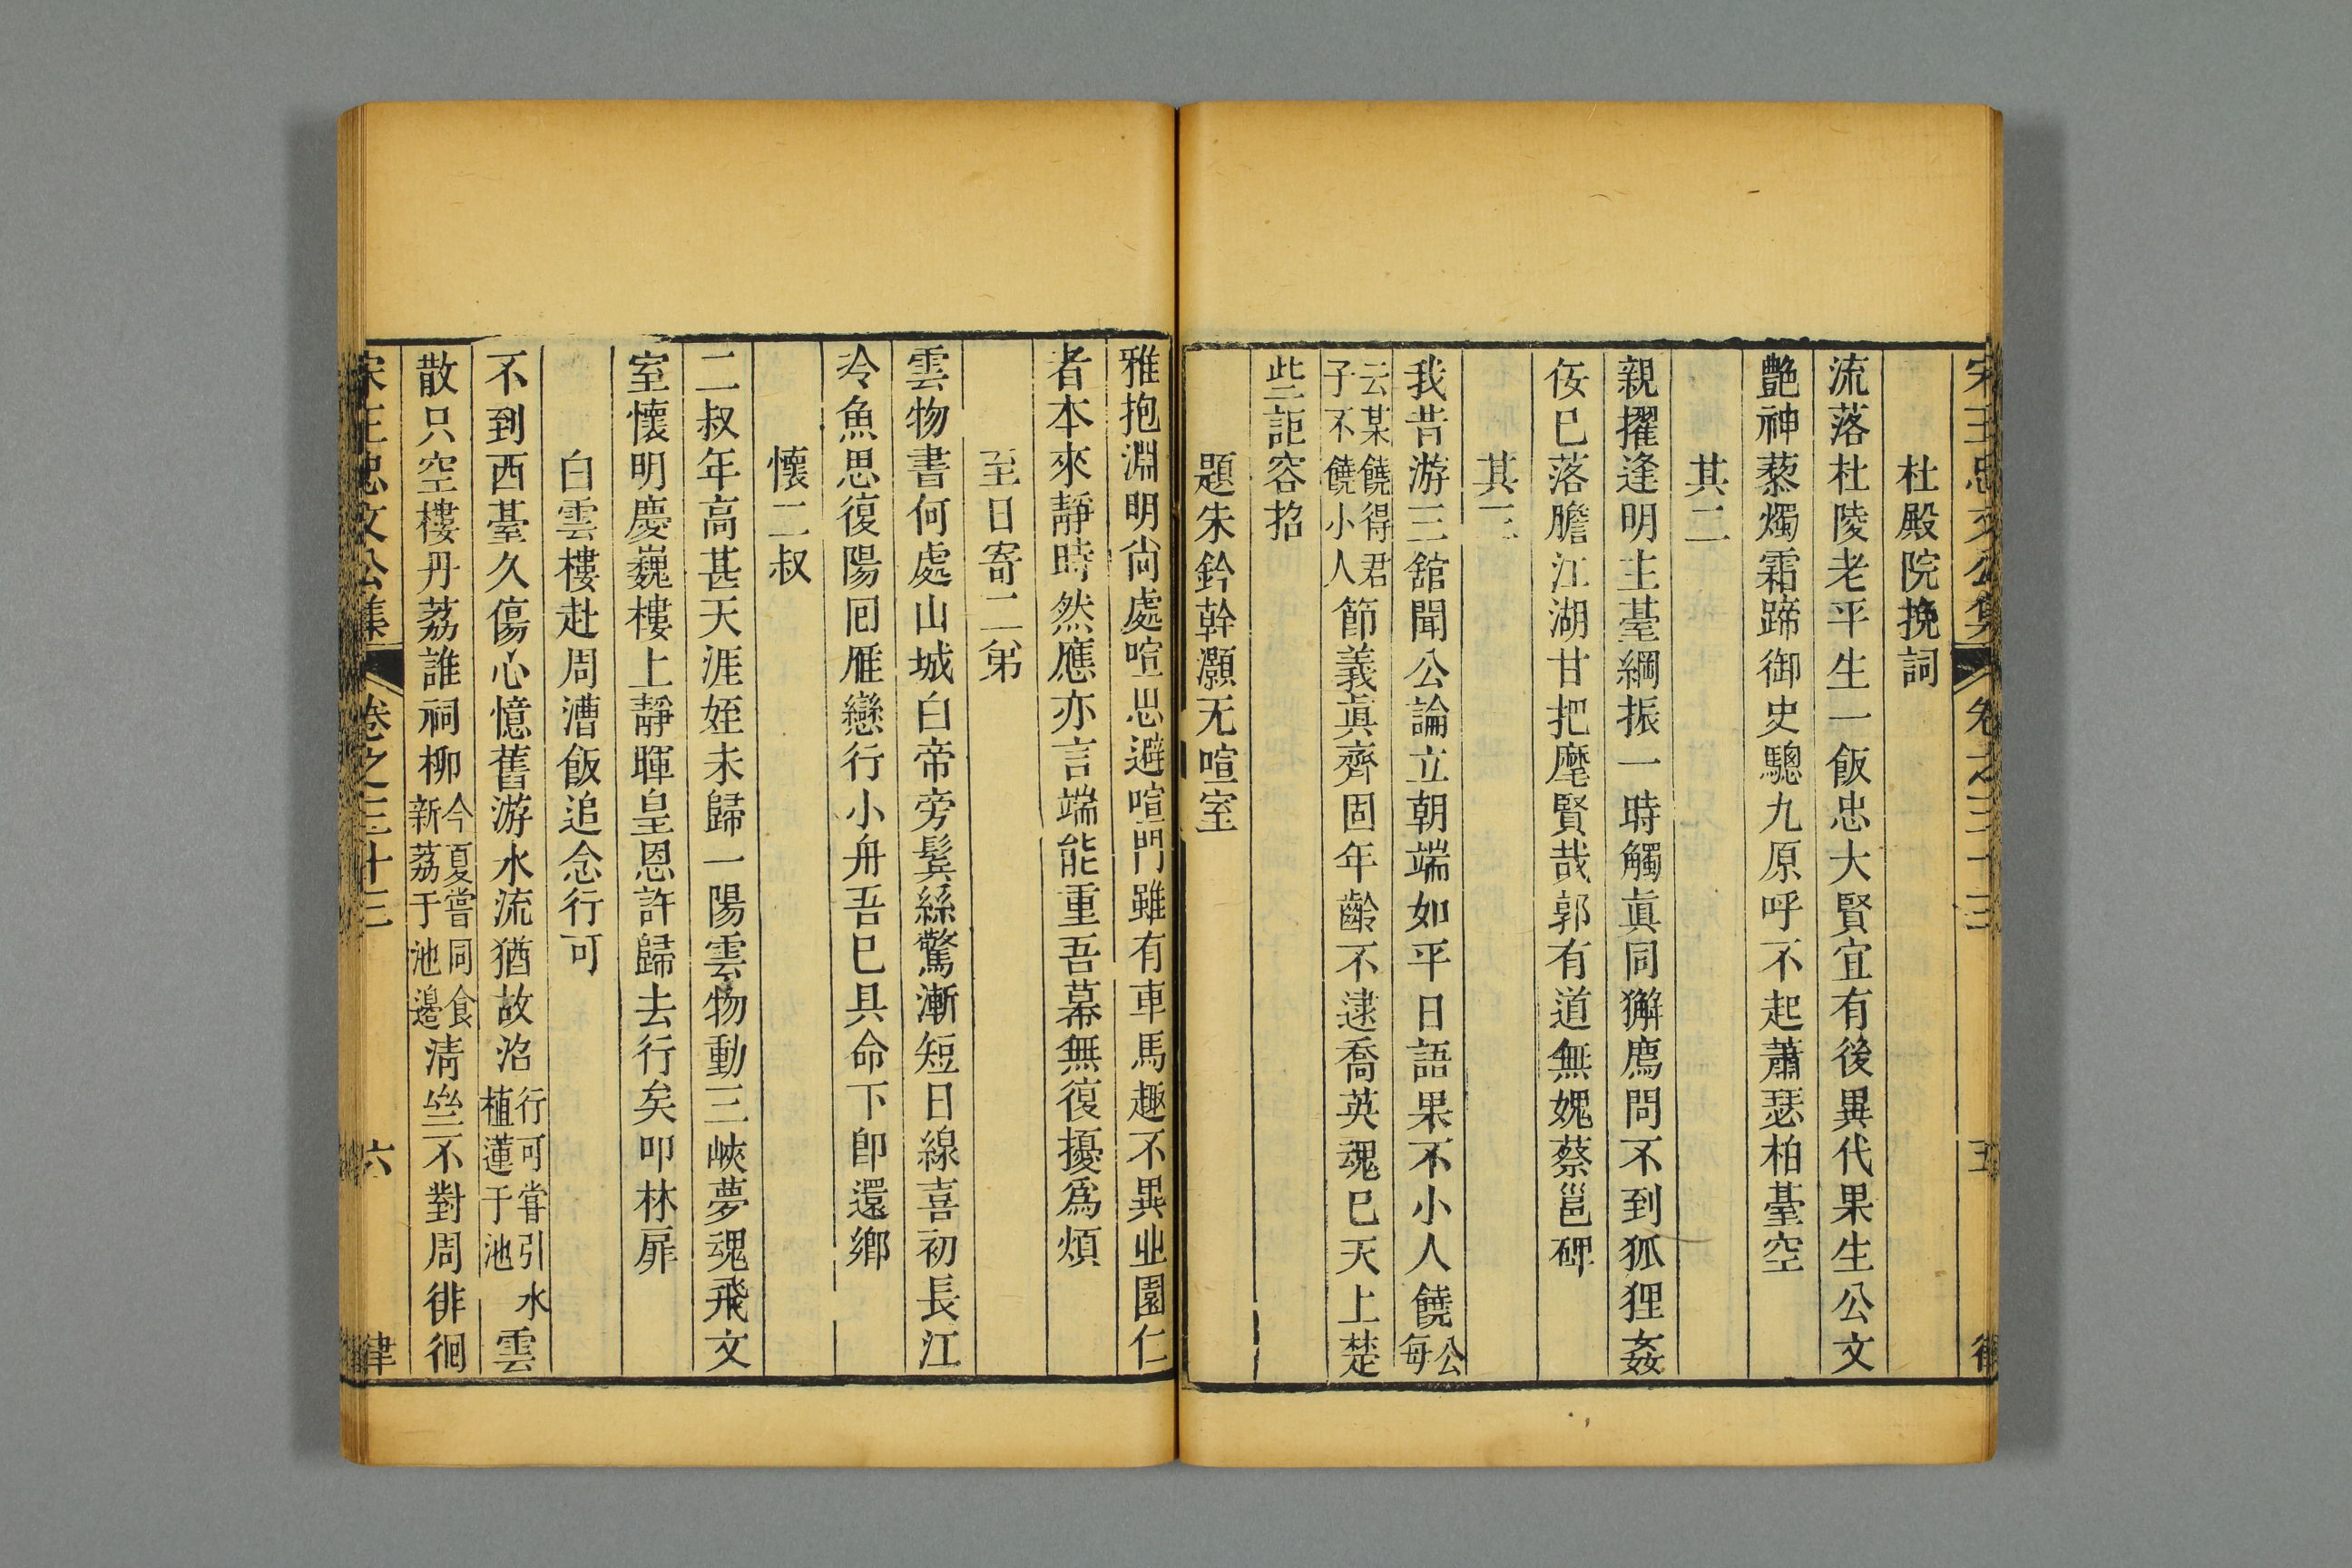 宋王忠文公集 卷之三十三 五 律
杜殿院挽詞
流落杜陵老平生一飯忠大賢宜有後異代果生公文
艷神藜燭霜蹄御史驄九原呼不起蕭瑟柏臺空
其二
親擢逢明主臺綱振一時觸眞同獬廌問不到狐狸姦
佞已落膽江湖甘把麾賢哉郭有道無媿蔡邕碑
其三
我昔游三館聞公論立朝端如平日語果不小人饒公每
云某饒得君子不饒小人節義眞齊固年齡不逮喬英魂已天上楚
些詎容招
題朱鈐幹灝无喧室
雅抱淵明尚處喧思避喧門雖有車馬趣不異丘園仁
者本來靜時然應亦言端能重吾幕無復擾爲煩
至日寄二弟
雲物書何處山城白帝旁鬂絲驚漸短日線喜初長江
冷魚思復陽回雁戀行小舟吾已具命下卽還鄉
懷二叔
二叔年高甚天涯姪未歸一陽雲物動三峽夢魂飛文
室懷明慶巍樓上靜暉皇恩許歸去行矣叩林扉
白雲樓赴周漕飯追念行可
不到西臺久傷心憶舊游水流猶故沼行可甞引水植蓮于池雲
散只空樓丹荔誰祠柳今夏嘗同食新荔于池邊淸㘴不對周徘徊
宋王忠文公集 卷之三十三 六 律